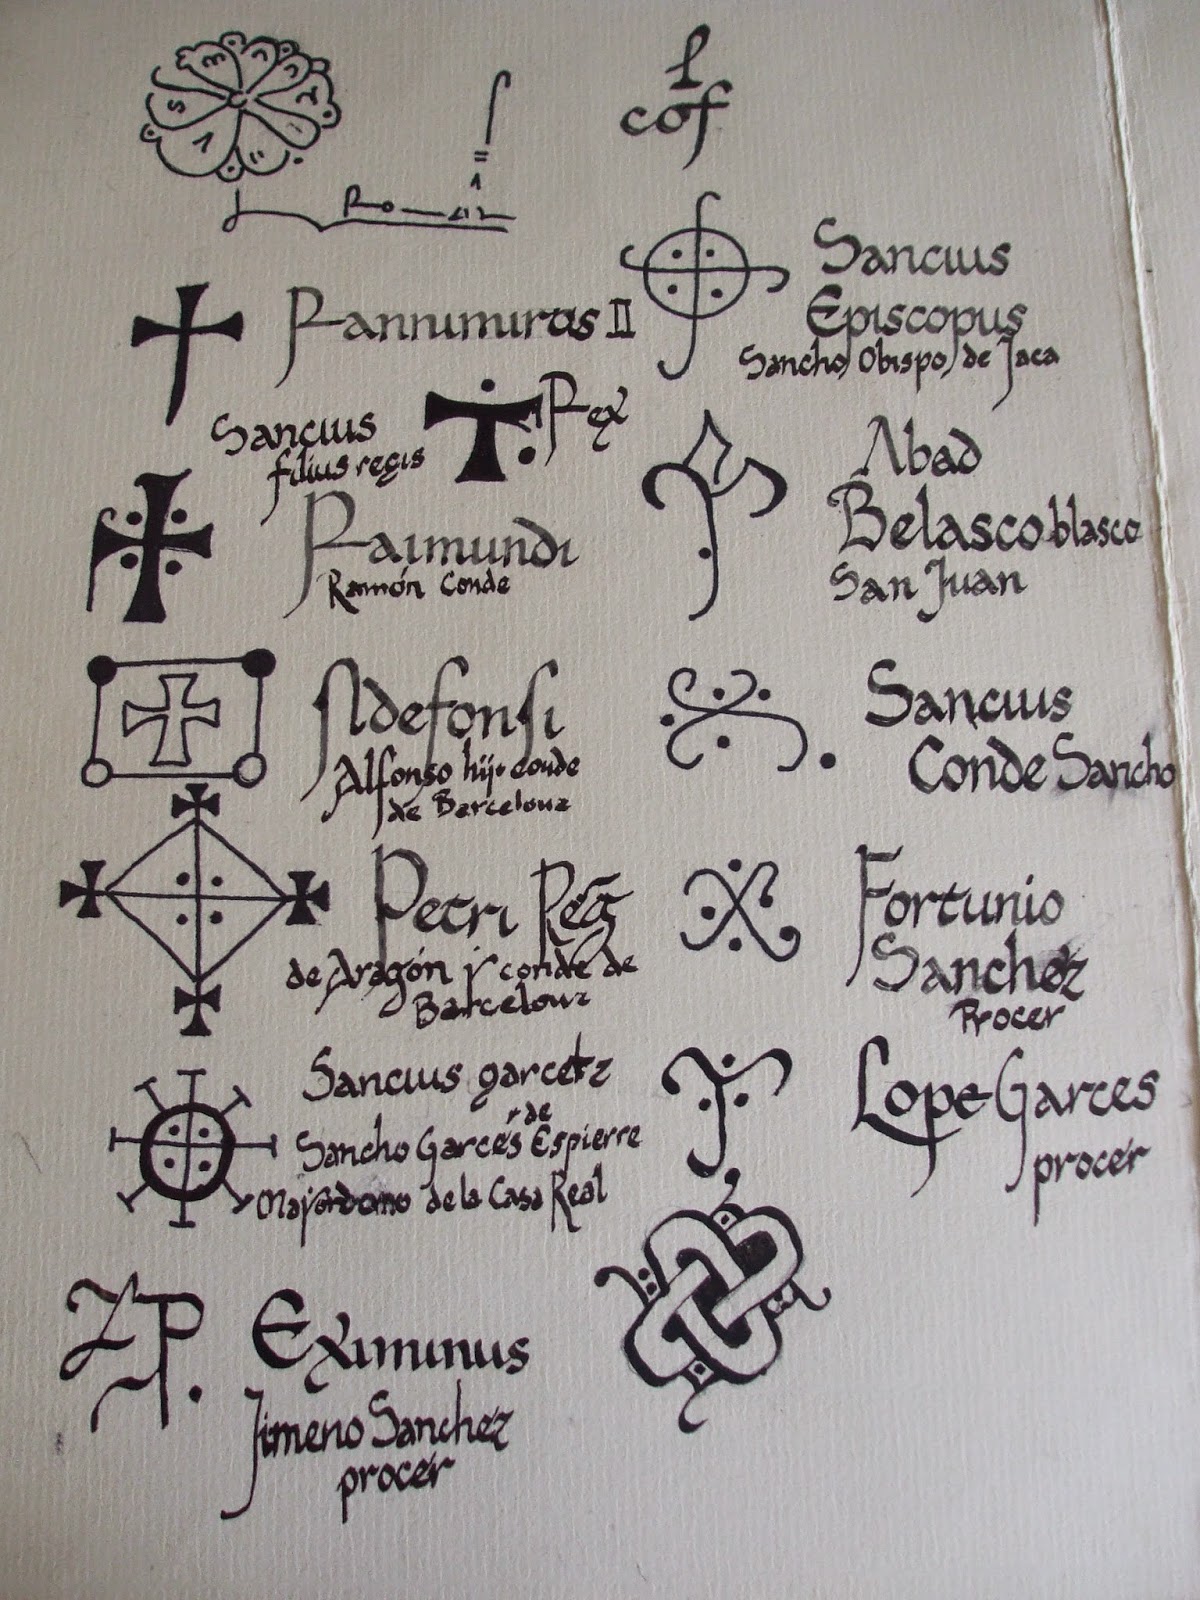 l
cof
Rannimirus II
Sancius
Episcopus
Sancho, Obispo, de Jaca
Sancius
filius regis
Rex
Raimundi
Ramón Conde
Abad
Belasco blasco
San Juan
Ildefonsi
Alfonso hijo conde
de Barcelona
Sancius
Conde Sancho
Petri Reg
de Aragón y conde de
Barcelona
Fortunio
Sanchez
Procer
Sancius garcetz
Sancho Garcés de Espierre
Majordomo de la Casa Real
Lope Garces
procer
Eximinus
Jimeno Sanchez
procer